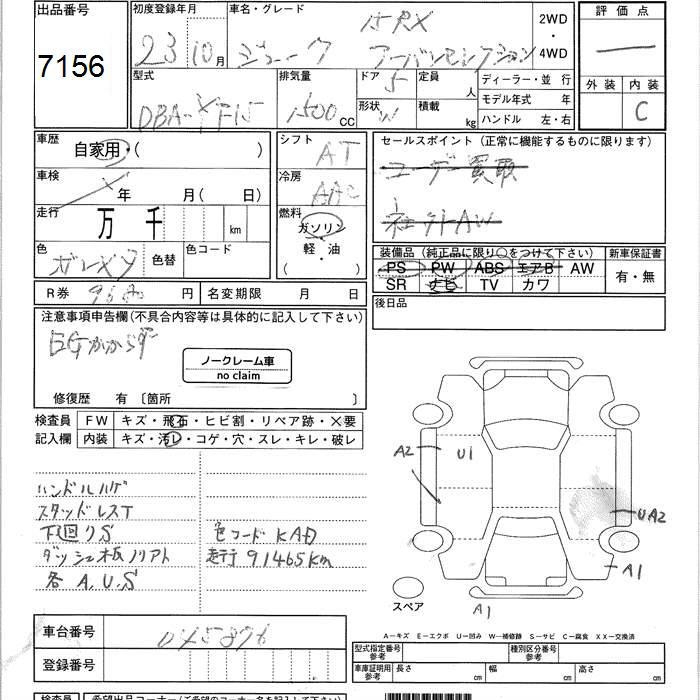 出品番号
7156
初度登録年月
23 10月
車名・グレード
15RX
ジューク アーバンセレクション
2WD
・
4WD
評価点
外装 内装
C
型式
DBA-YF15
排気量
1500 CC
ドア
5
形状
W
定員
人
積載
kg
ディーラー・並 行
モデル年式 年
ハンドル 左・右
車歴
自家用・( )
車検
年 月( 日)
走行
万 千 km
色
色替
色コード
R券
円
名変期限 月 日
シフト
AT
冷房
AAC
燃料
ガソリン
軽・油
( )
セールスポイント(正常に機能するものに限ります)
ユーザー買取
社外AW
装備品 (純正品に限り○をつけて下さい)
PS PW ABS エアB AW
SR ナビ TV カワ
新車保証書
有・無
後日品
注意事項申告欄(不具合内容等は具体的に記入して下さい)
EGかからず
ノークレーム車
no claim
修復歴 有 〔箇所 〕
検査員
記入欄
FW キズ・飛石・ヒビ割・リペア跡・×要
内装 キズ・汚レ・コゲ・穴・スレ・キレ・破レ
ハンドルハゲ
スタッドレスT
下廻りS
色コード KAD
ダッシュ板ノリアト
走行 91465km
各 A.U.S
A2
U1
UA2
A1
A1
スペア
車台番号
045876
登録番号
A―キズ E―エクボ U―凹み W―補修跡 S―サビ C―腐食 XX―交換済
型式指定番号
参考
種別区分番号
参考
車庫証明用
参考
長さ cm
幅 cm
高さ cm
検査員
希望出品コーナー(ご希望のコーナー名を記入して下さい)